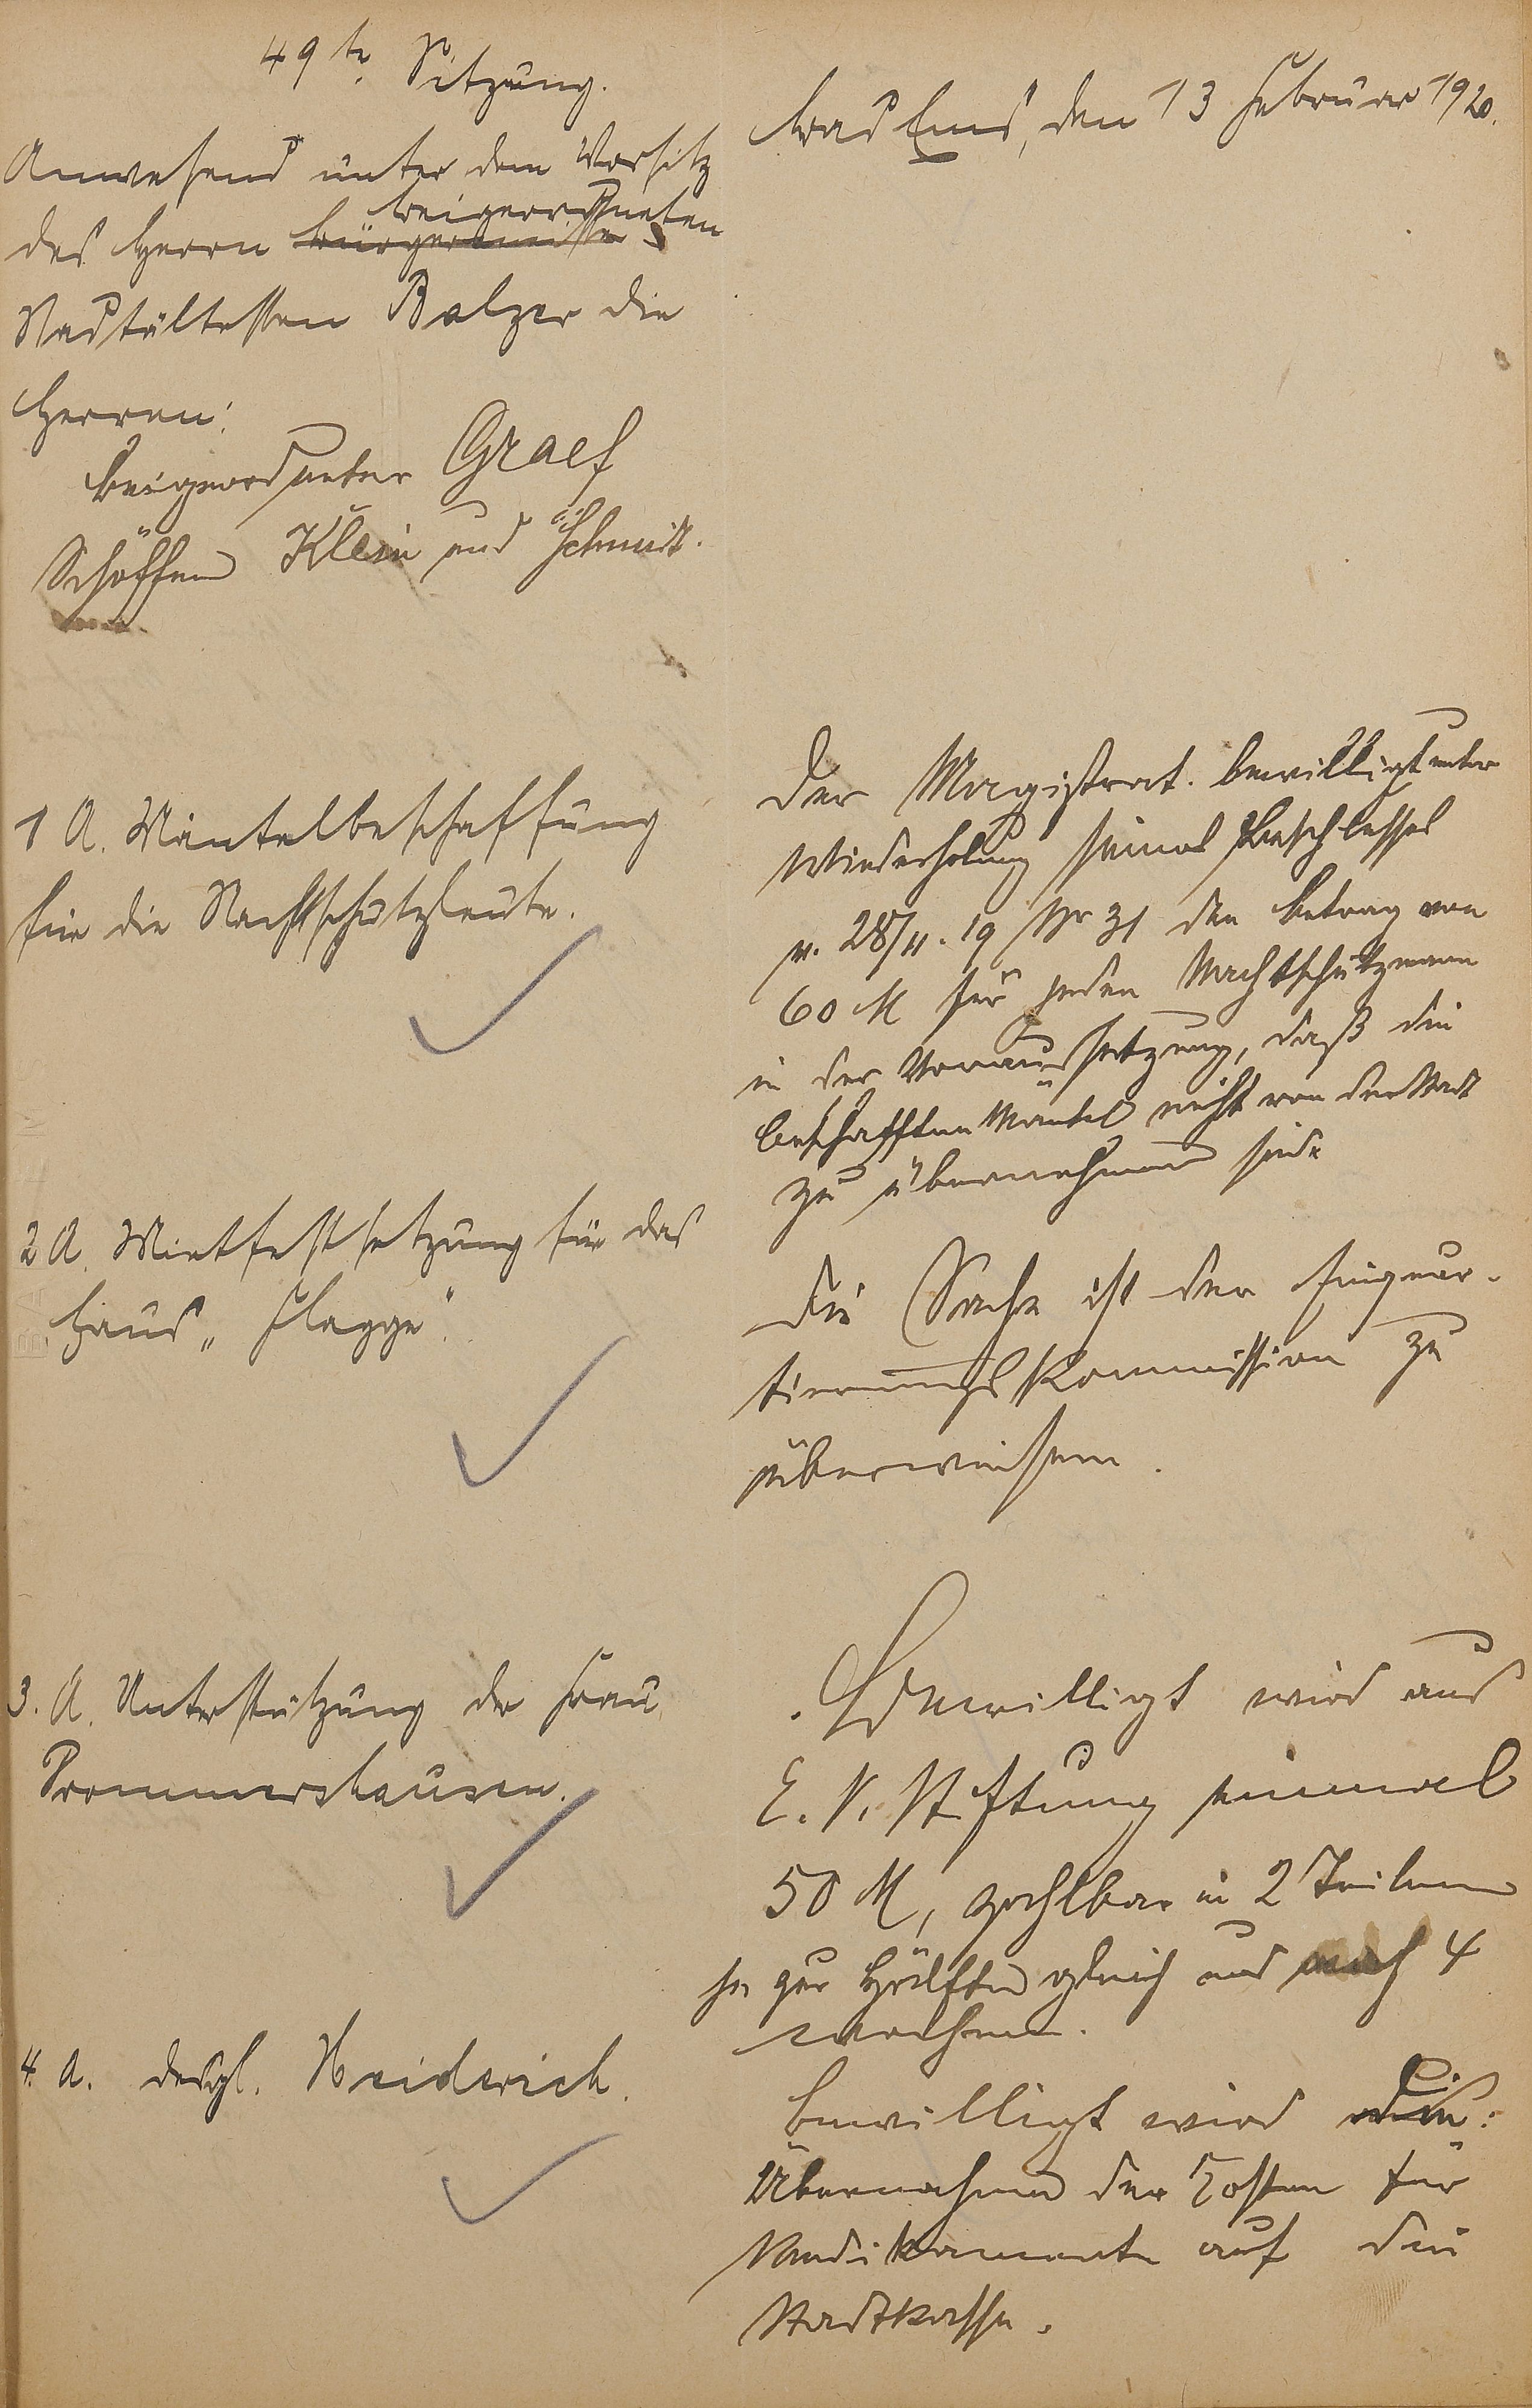 49te Sitzung.
Bad Ems, den 13 Februar 1920.
Anwesend unter dem Vorsitz
des Herrn Bürgermeisters Beigeordneten
Stadtältesten Balzer die
Herren:
Beigeordneter Graef
Schöffen Klein und Schmidt.
1 A. Mäntelbeschaffung
für die Nachtschutzleute.
Der Magistrat bewilligt unter
Wiederholung seines Beschlusses
v. 28/11.19 Nr 31 den Betrag von
60 M für jeden Nachtschutzmann
in der Voraussetzung, daß die
beschafften Mäntel nicht von der Stadt
zu übernehmen sind.
2 A. Mietfestsetzung für das
Haus „Flagge“.
Die Sache ist der Einquar-
tierungskommission zu
überweisen.
3. A. Unterstützung der Frau
Prommershausen.
Bewilligt wird aus
E. V. Stiftung einmal
50 M, zahlbar in 2 Teilen
je zur Hälfte gleich und nach 4
Wochen.
4. A. desgl. Heiderich.
Bewilligt wird die
Übernahme der Kosten für
Medikamente auf die
Stadtkasse.